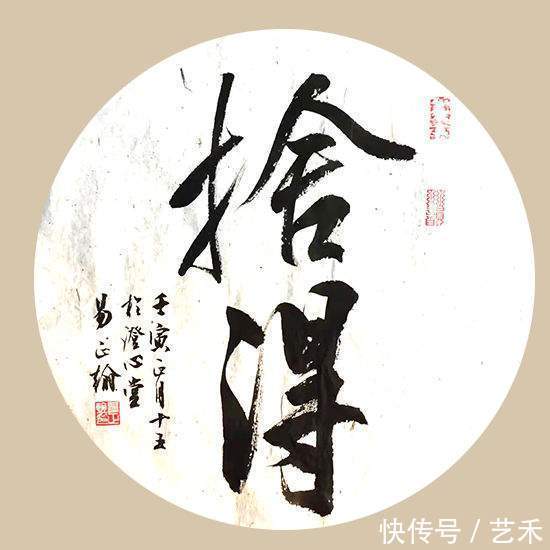 捨得
壬寅正月十五
於澄心堂
易正翰
快传号 / 艺禾